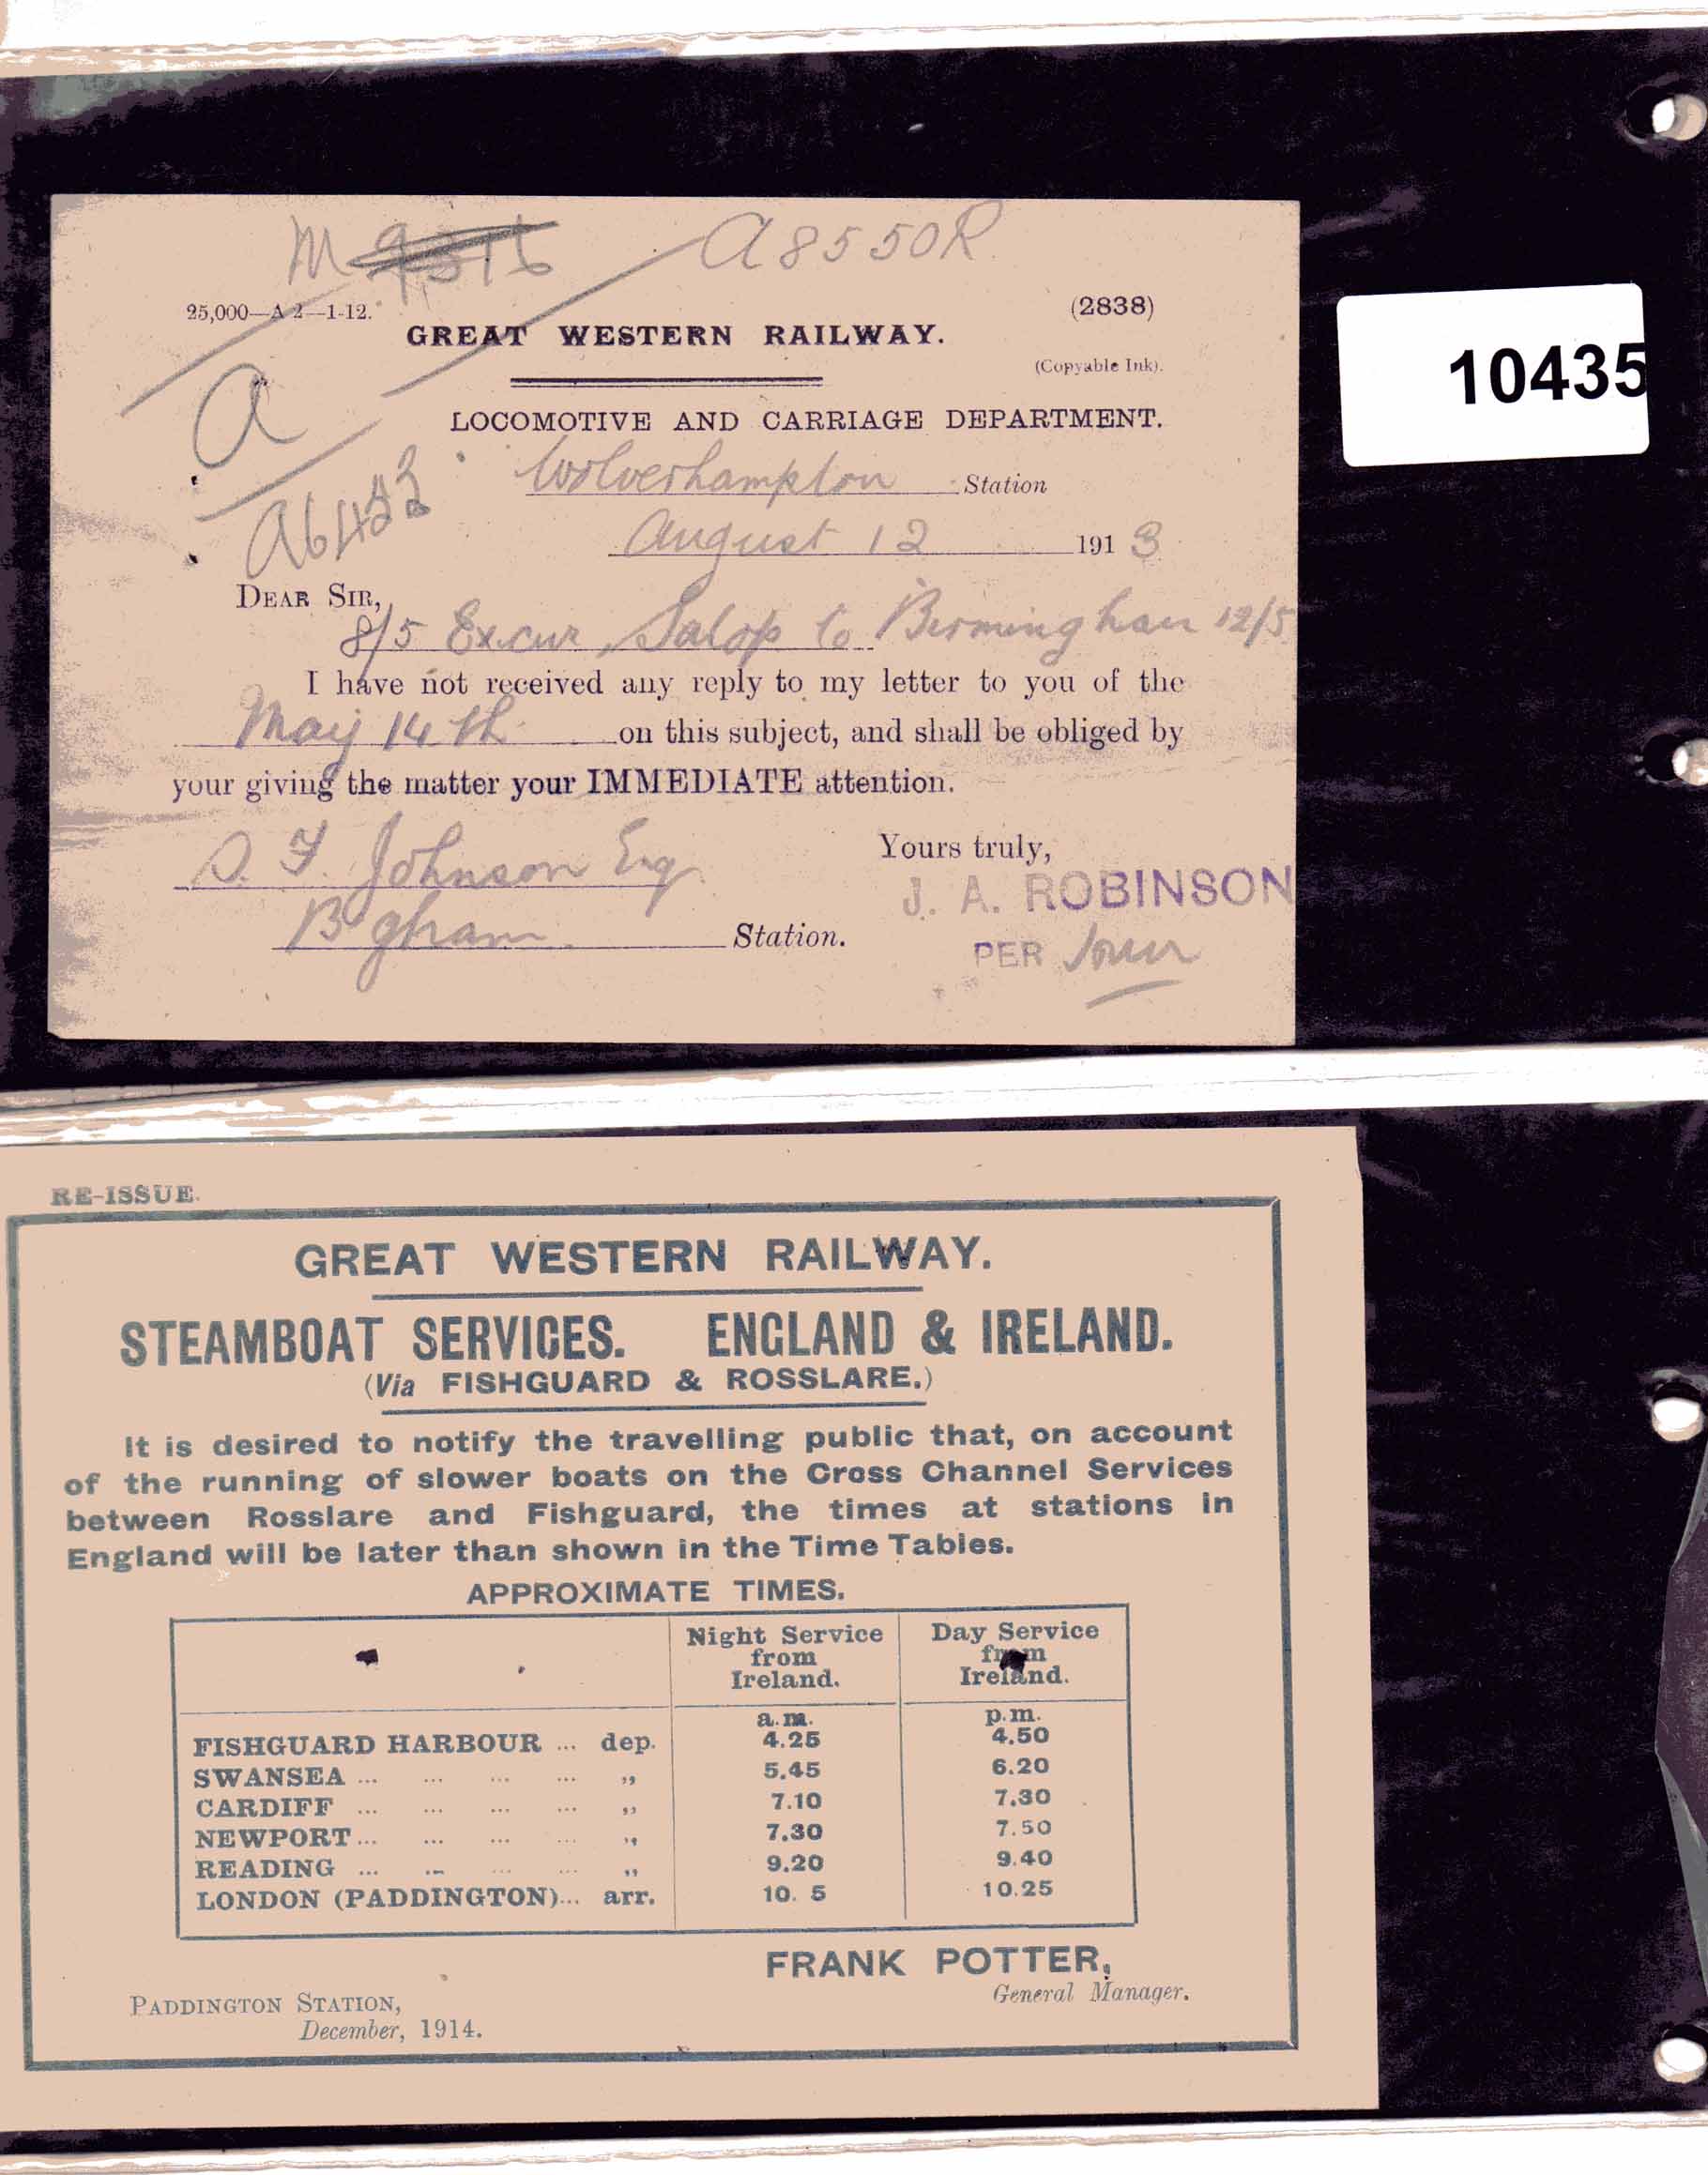 A8550R
25,000—A 2—1-12.
(2838)
GREAT WESTERN RAILWAY.
(Copyable Ink).
A
LOCOMOTIVE AND CARRIAGE DEPARTMENT.
Wolverhampton Station
August 12 1913
DEAR SIR,
8/5 Excur, Salop to Birmingham 12/5
I have not received any reply to my letter to you of the
May 14th on this subject, and shall be obliged by
your giving the matter your IMMEDIATE attention.
Yours truly,
S. F. Johnson Esq.
J. A. ROBINSON
Bgham Station.
PER
10435
RE-ISSUE.
GREAT WESTERN RAILWAY.
STEAMBOAT SERVICES. ENGLAND & IRELAND.
(Via FISHGUARD & ROSSLARE.)
It is desired to notify the travelling public that, on account
of the running of slower boats on the Cross Channel Services
between Rosslare and Fishguard, the times at stations in
England will be later than shown in the Time Tables.
APPROXIMATE TIMES.
Night Service from Ireland. Day Service from Ireland.
a.m. p.m.
FISHGUARD HARBOUR ... dep. 4.25 4.50
SWANSEA ... ... ... ... ,, 5.45 6.20
CARDIFF ... ... ... ... ,, 7.10 7.30
NEWPORT ... ... ... ... ,, 7.30 7.50
READING ... ... ... ... ,, 9.20 9.40
LONDON (PADDINGTON)... arr. 10. 5 10.25
FRANK POTTER,
General Manager.
PADDINGTON STATION,
December, 1914.